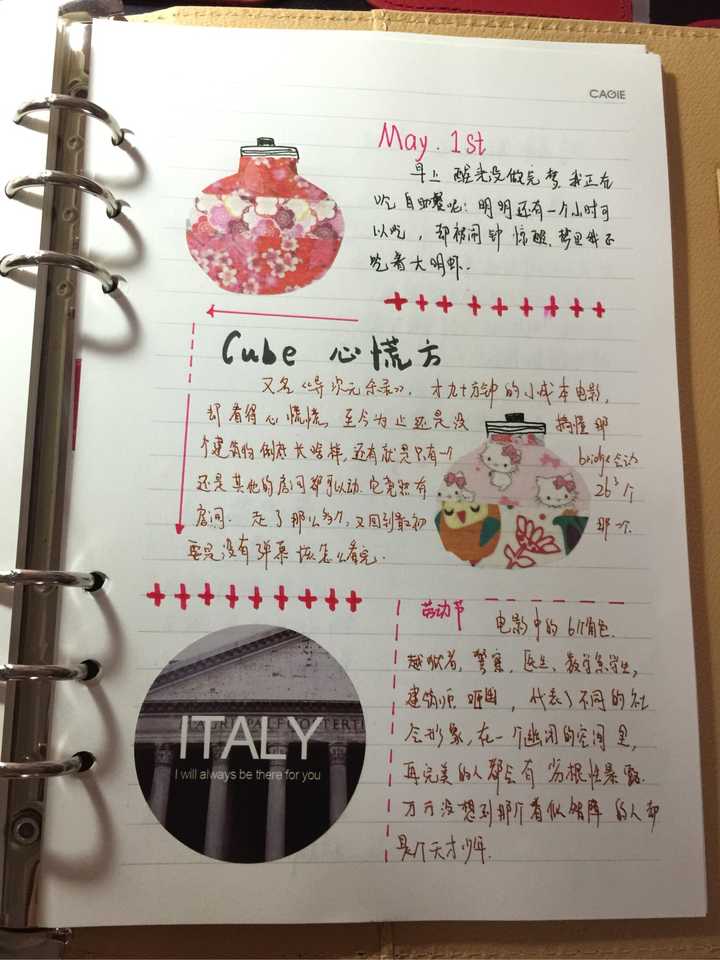 CAGIE
May. 1st
早上 醒来没做完梦, 我正在
吃自助餐呢; 明明还有一个小时可
以吃, 却被闹钟惊醒. 梦里我还
吃着大明虾.
Cube 心慌方
又名《异次元杀阵》. 才九十分钟的小成本电影,
却看得心慌慌. 至今为止还是没 搞懂那
个建筑物倒底长啥样, 还有就是只有一个 bridge会动
还是其他的房间都可以动. 它竟然有 26³个
房间. 走了那么多个, 又回到最初 那个.
要是没有弹幕 该怎么看完.
劳动节 电影中的6个角色.
越狱者, 警察, 医生, 数学系学生,
建筑师 , 代表了不同的社
会形象, 在一个幽闭的空间里,
再完美的人都会有 劣根性暴露.
万万没想到那个看似 的人却
是个天才少年.
ITALY
I will always be there for you